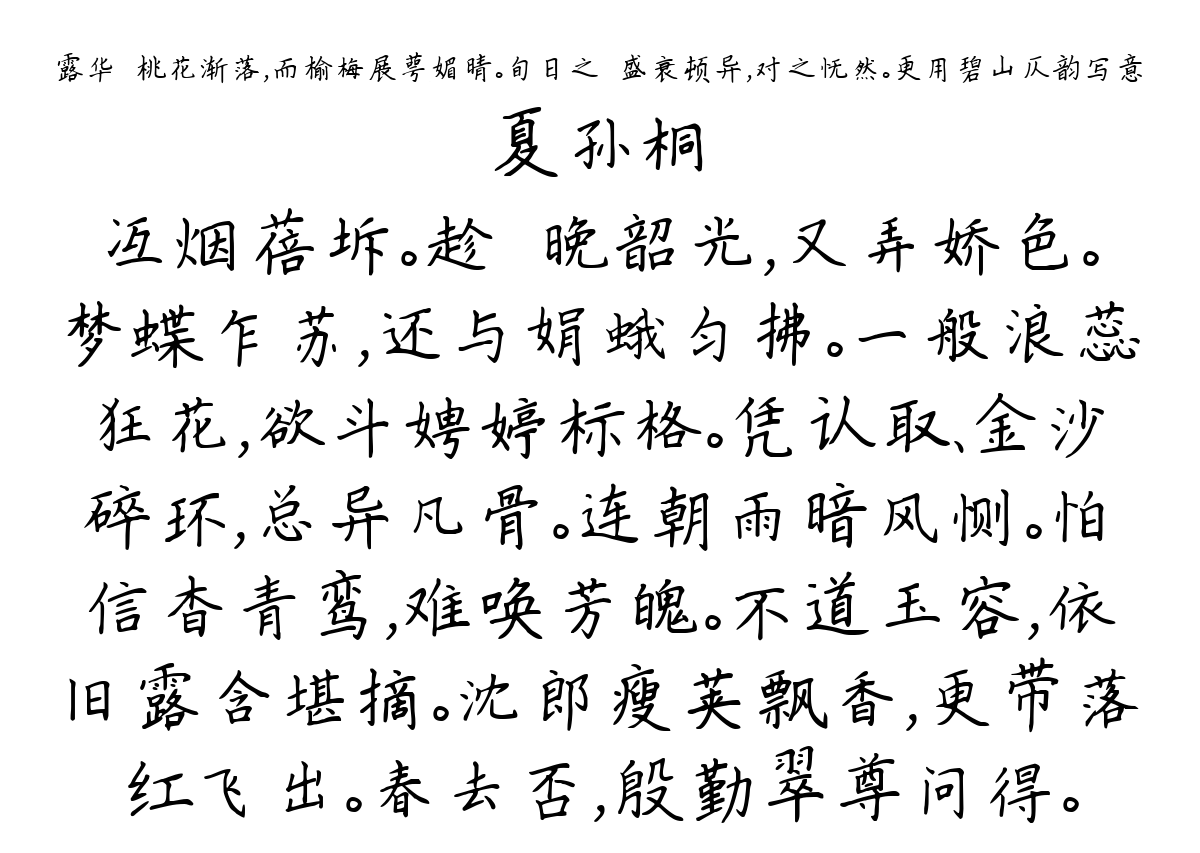 露华 桃花渐落,而榆梅展萼媚晴。旬日之 盛衰顿异,对之怃然。更用碧山仄韵写意
夏孙桐
冱烟蓓坼。趁 晚韶光,又弄娇色。
梦蝶乍苏,还与娟蛾匀拂。一般浪蕊
狂花,欲斗娉婷标格。凭认取、金沙
碎环,总异凡骨。连朝雨暗风恻。怕
信杳青鸾,难唤芳魄。不道玉容,依
旧露含堪摘。沈郎瘦荚飘香,更带落
红飞出。春去否,殷勤翠尊问得。